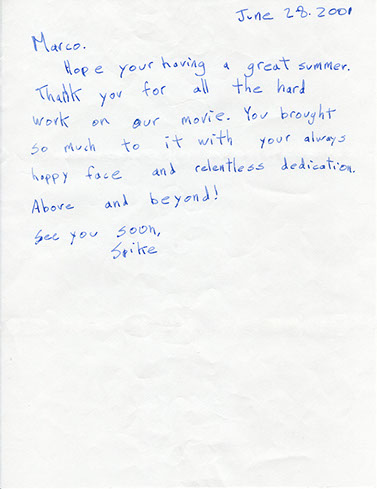 June 28. 2001
Marco.
Hope your having a great summer.
Thank you for all the hard
work on our movie. You brought
so much to it with your always
happy face and relentless dedication.
Above and beyond!
See you soon,
Spike